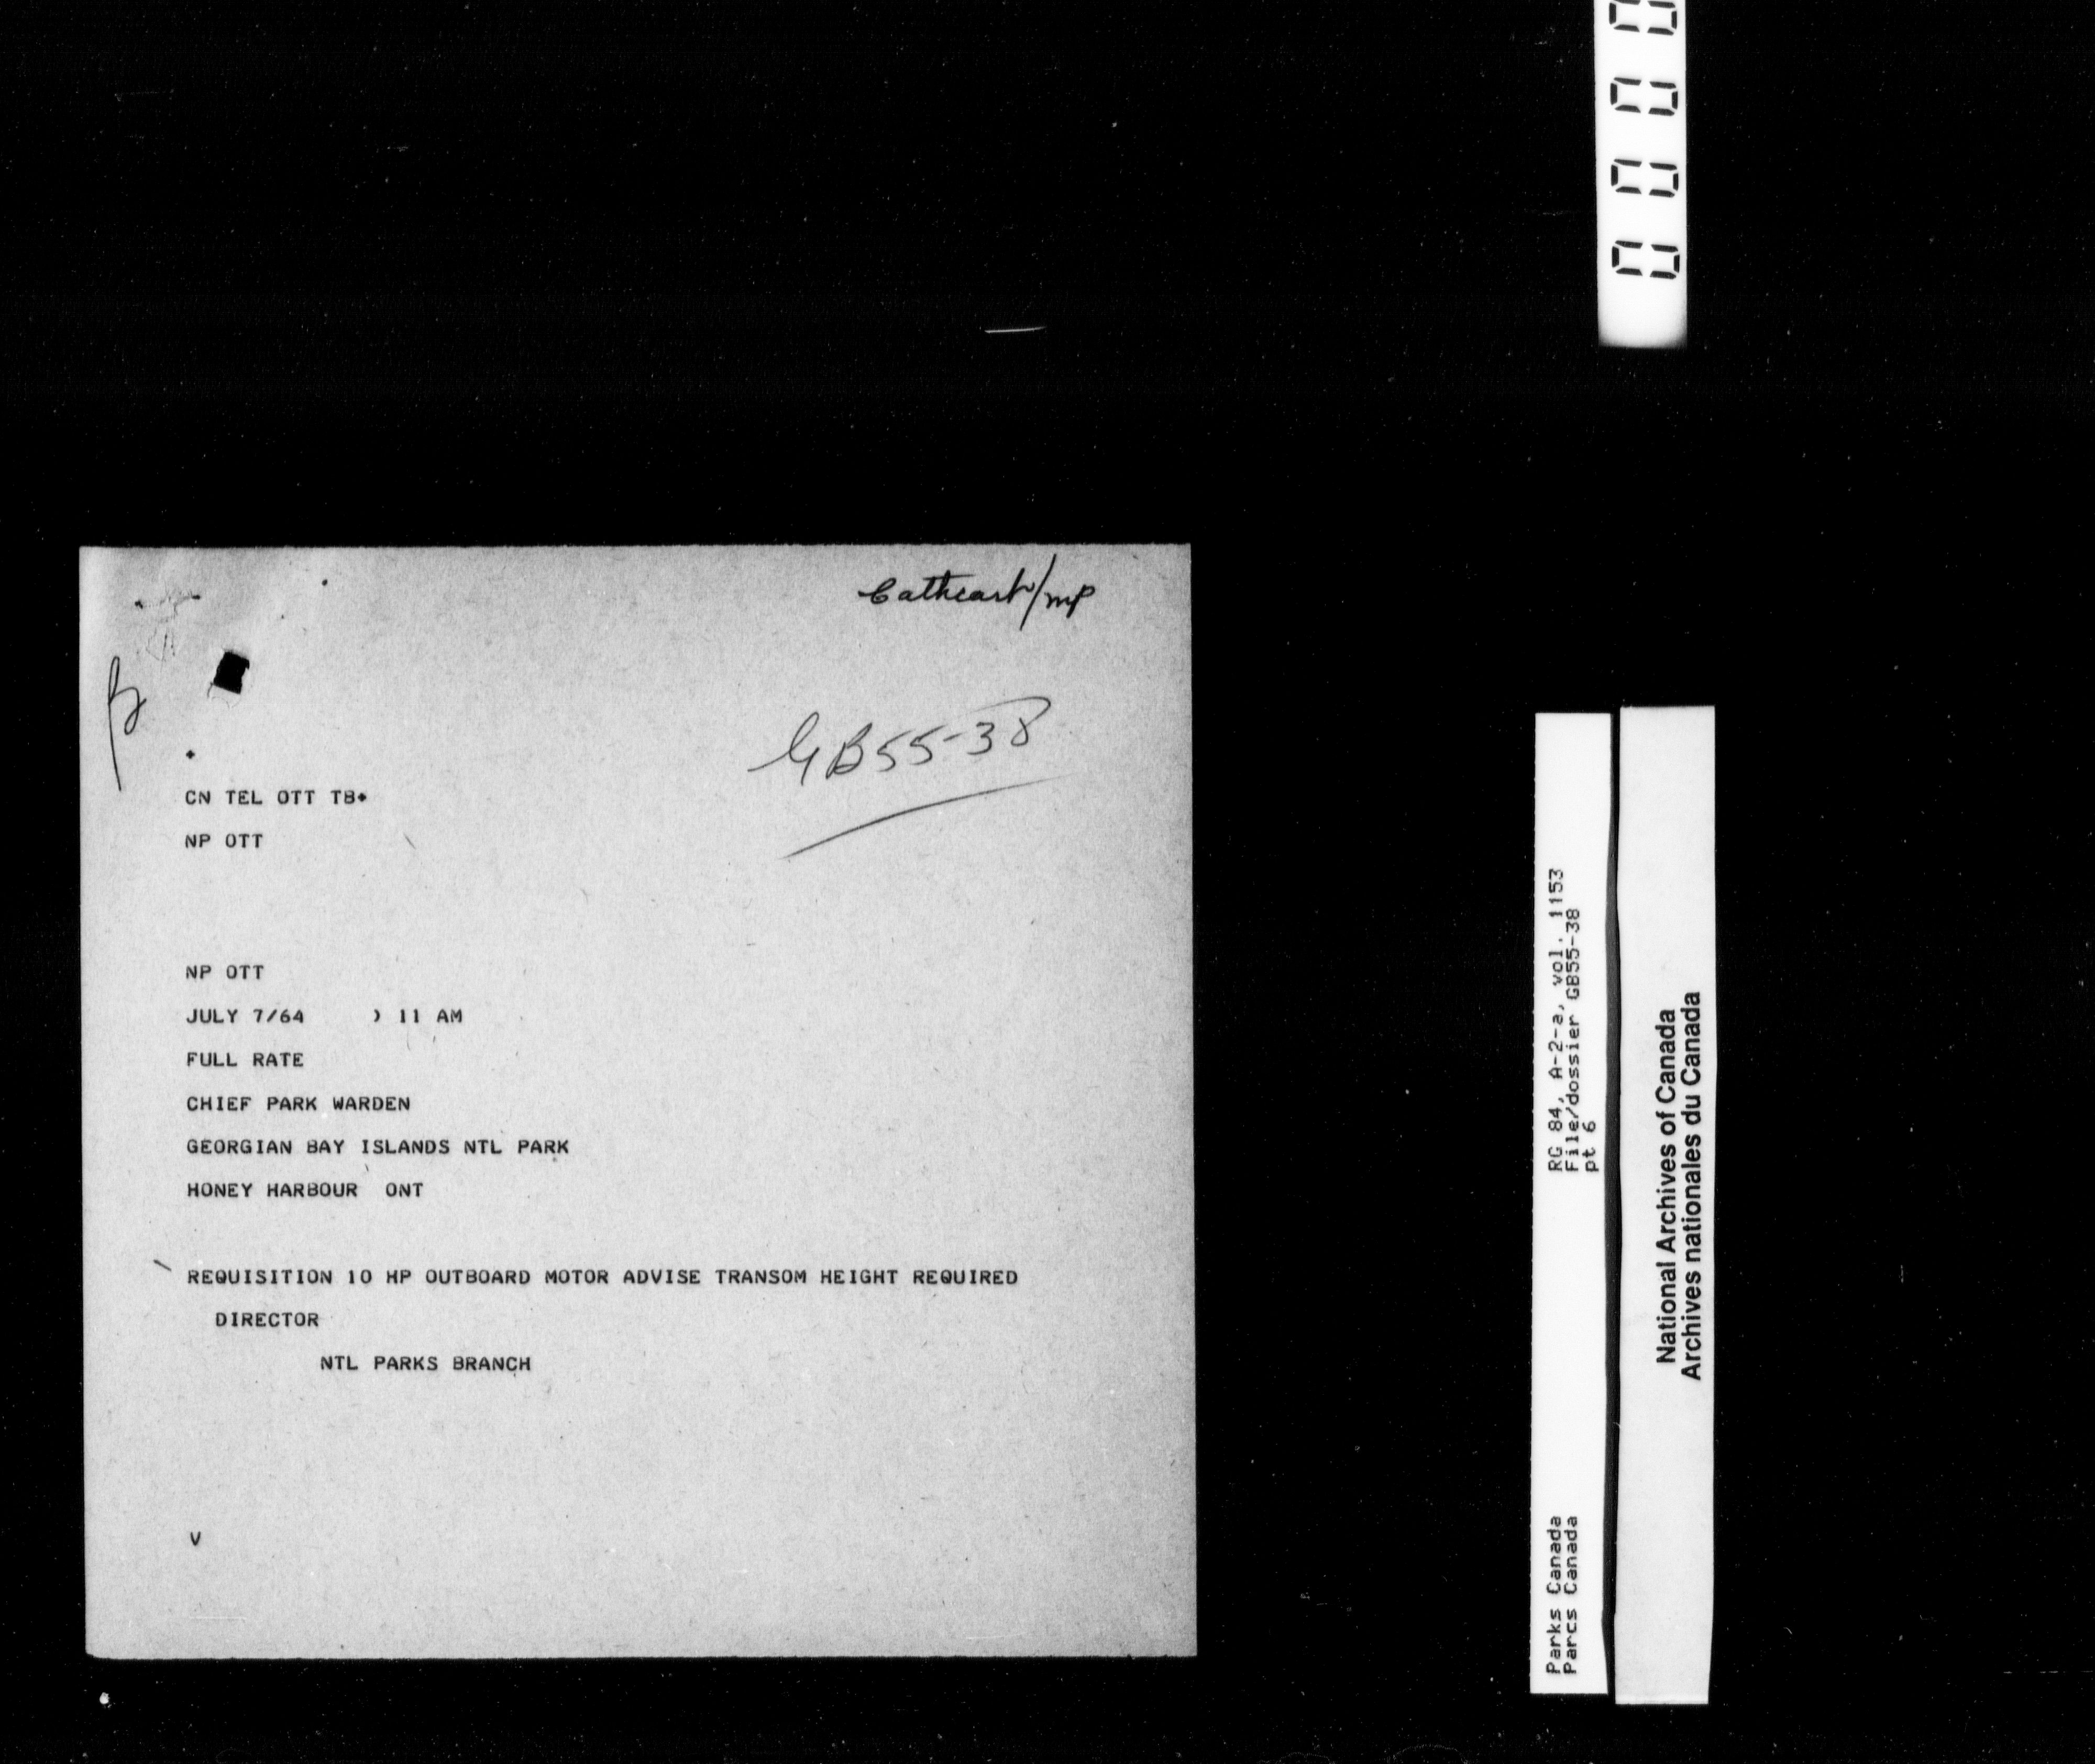 Cathcart/mp
GB55-38
CN TEL OTT TB+
NP OTT
NP OTT
JULY 7/64 ) 11 AM
FULL RATE
CHIEF PARK WARDEN
GEORGIAN BAY ISLANDS NTL PARK
HONEY HARBOUR ONT
REQUISITION 10 HP OUTBOARD MOTOR ADVISE TRANSOM HEIGHT REQUIRED
DIRECTOR
NTL PARKS BRANCH
V
0 0 0 0
RG 84, A-2-a, vol. 1153
File/dossier GB55-38
pt 6
Parks Canada
Parcs Canada
National Archives of Canada
Archives nationales du Canada